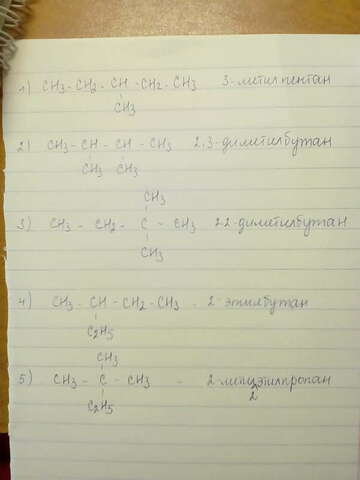 1) CH3 - CH2 - CH - CH2 - CH3 3-метилпентан
CH3
2) CH3 - CH - CH - CH3 2,3-диметилбутан
CH3 CH3
CH3
3) CH3 - CH2 - C - CH3 22-диметилбутан
CH3
4) CH3 - CH - CH2 - CH3 - 2-этилбутан
C2H5
CH3
5) CH3 - C - CH3 - 2-метилэтилпропан
2
C2H5